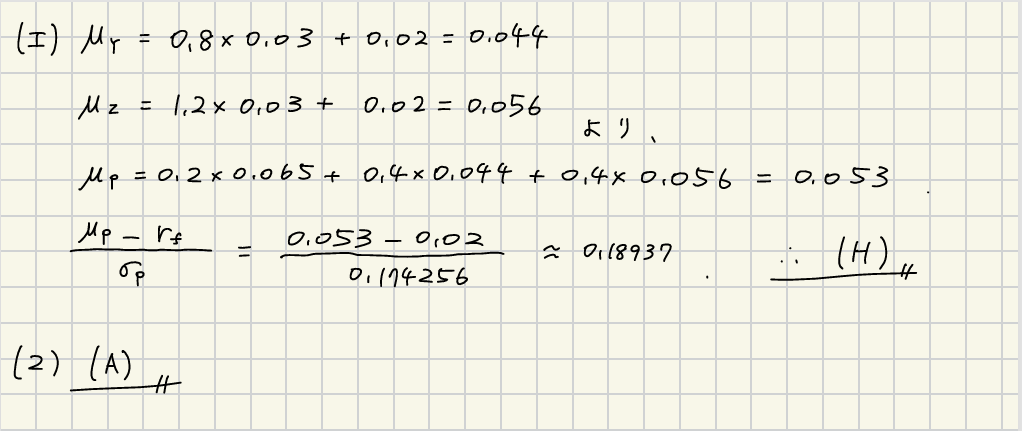 (I) μ_Y = 0.8 × 0.03 + 0.02 = 0.044
μ_Z = 1.2 × 0.03 + 0.02 = 0.056
より、
μ_P = 0.2 × 0.065 + 0.4 × 0.044 + 0.4 × 0.056 = 0.053 .
(μ_P − r_f) / σ_P = (0.053 − 0.02) / 0.174256 ≈ 0.18937 . ∴ (H)
(2) (A)